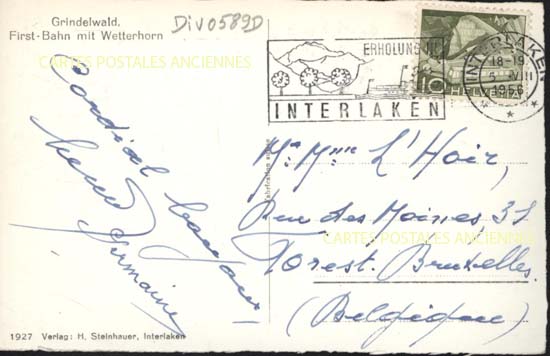 Grindelwald,
First-Bahn mit Wetterhorn
Div0589D
CARTES POSTALES ANCIENNES
ERHOLUNG IN
INTERLAKEN
INTERLAKEN
18-19
5 VIII
1956
10 HELVETIA
Cordial bonjour
Germaine
Mr Mme L'Hoir,
Rue des Moines, 31
Forest. Bruxelles.
(Belgique)
CARTES POSTALES ANCIENNES
1927 Verlag: H. Steinhauer, Interlaken